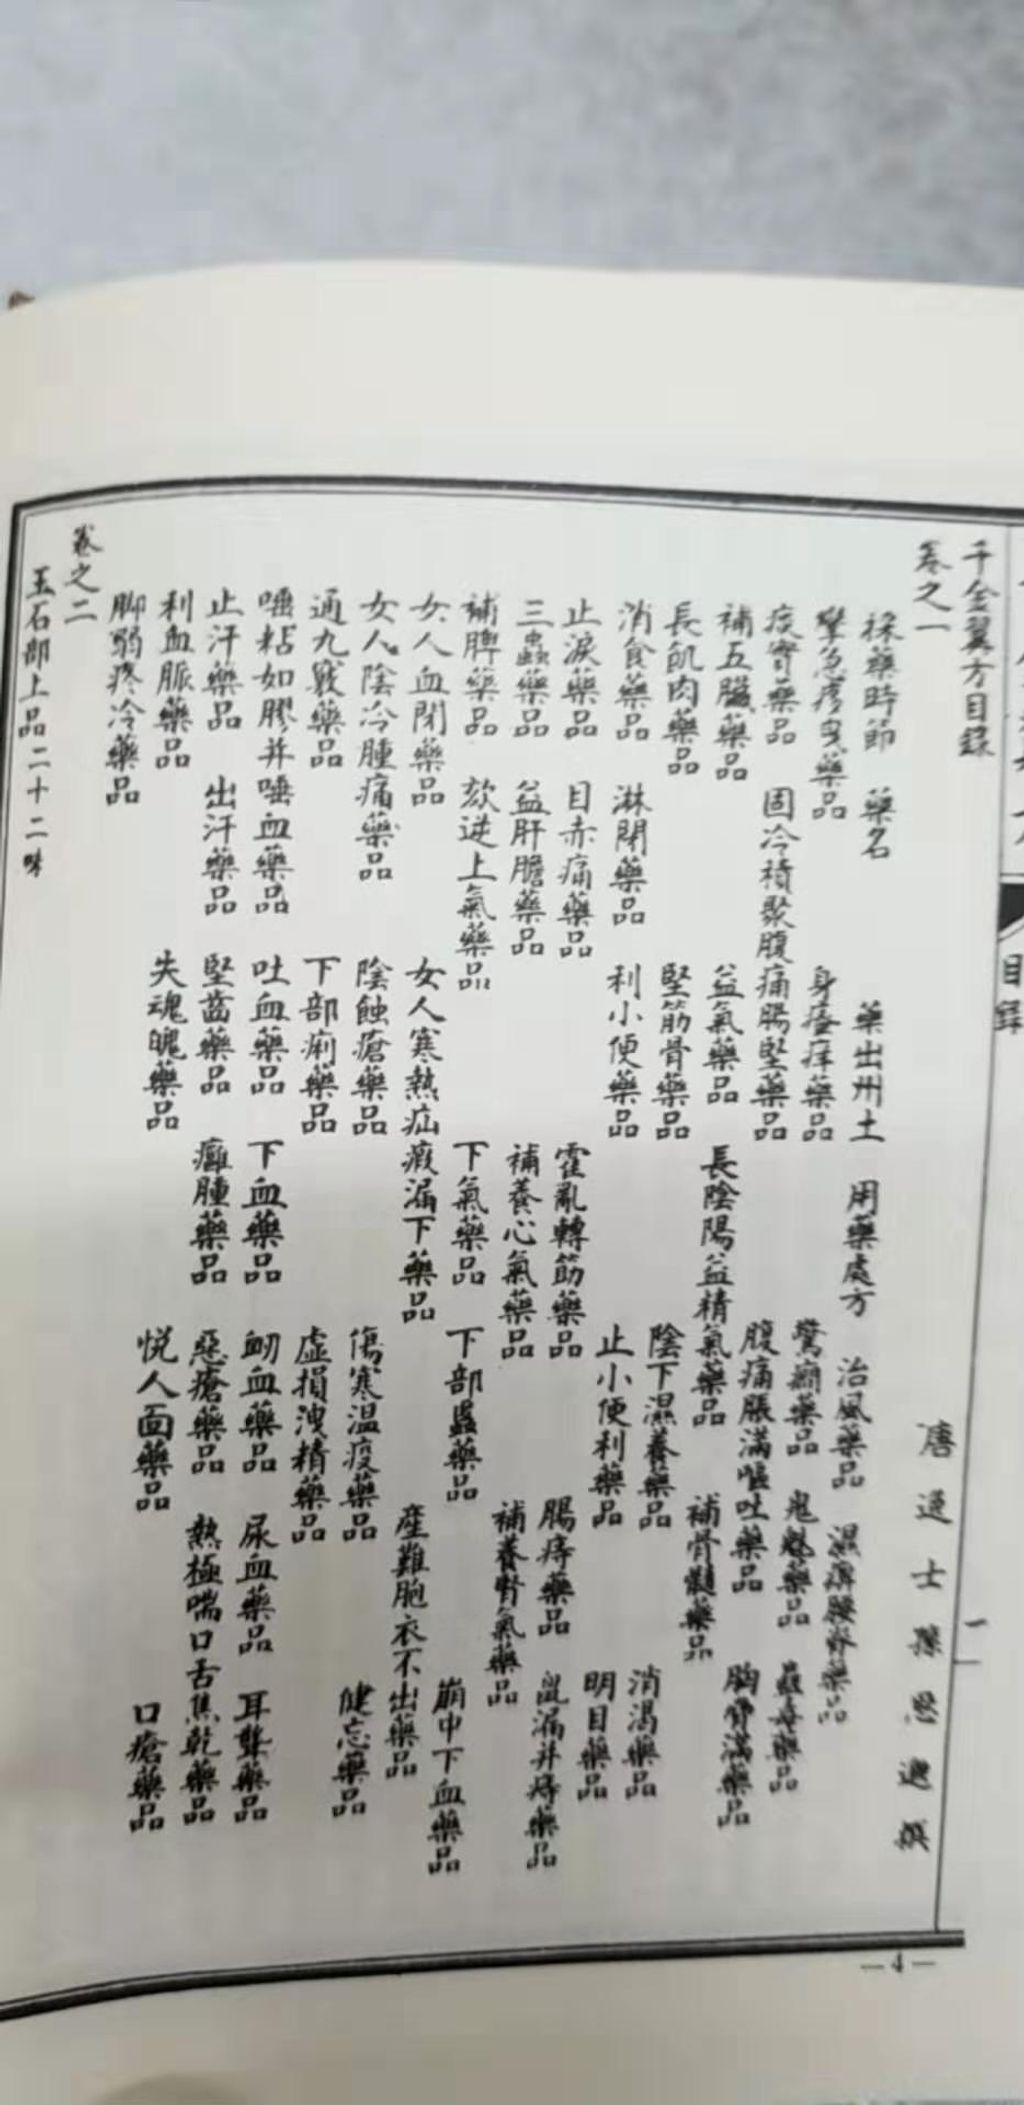 千金翼方目錄
卷之一 唐逸士孫思邈撰
採藥時節 藥名 藥出州土 用藥處方 治風藥品 濕痹腰脊藥品
攣急疼曳藥品 身瘙痒藥品 驚癇藥品 鬼魅藥品 蠱毒藥品
痰實藥品 固冷積聚腹痛腸堅藥品 腹痛脹滿嘔吐藥品 胸脅滿藥品
補五臟藥品 益氣藥品 長陰陽益精氣藥品 補骨髓藥品
長肌肉藥品 堅筋骨藥品 陰下濕養藥品 消渴藥品
消食藥品 淋閉藥品 利小便藥品 止小便利藥品 明目藥品
止淚藥品 目赤痛藥品 霍亂轉筋藥品 腸痔藥品 鼠漏并痔藥品
三蟲藥品 益肝膽藥品 補養心氣藥品 補養腎氣藥品
補脾藥品 欬逆上氣藥品 下氣藥品 下部䘌藥品 崩中下血藥品
女人血閉藥品 女人寒熱疝瘕漏下藥品 產難胞衣不出藥品
女人陰冷腫痛藥品 陰蝕瘡藥品 傷寒溫疫藥品 健忘藥品
通九竅藥品 下部痢藥品 虛損洩精藥品
唾粘如膠并唾血藥品 吐血藥品 下血藥品 衂血藥品 尿血藥品 耳聾藥品
止汗藥品 出汗藥品 堅齒藥品 癰腫藥品 惡瘡藥品 熱極喘口舌焦乾藥品
利血脈藥品 失魂魄藥品 悅人面藥品 口瘡藥品
脚弱疼冷藥品
卷之二
玉石部上品二十二味
目錄
一
—4—